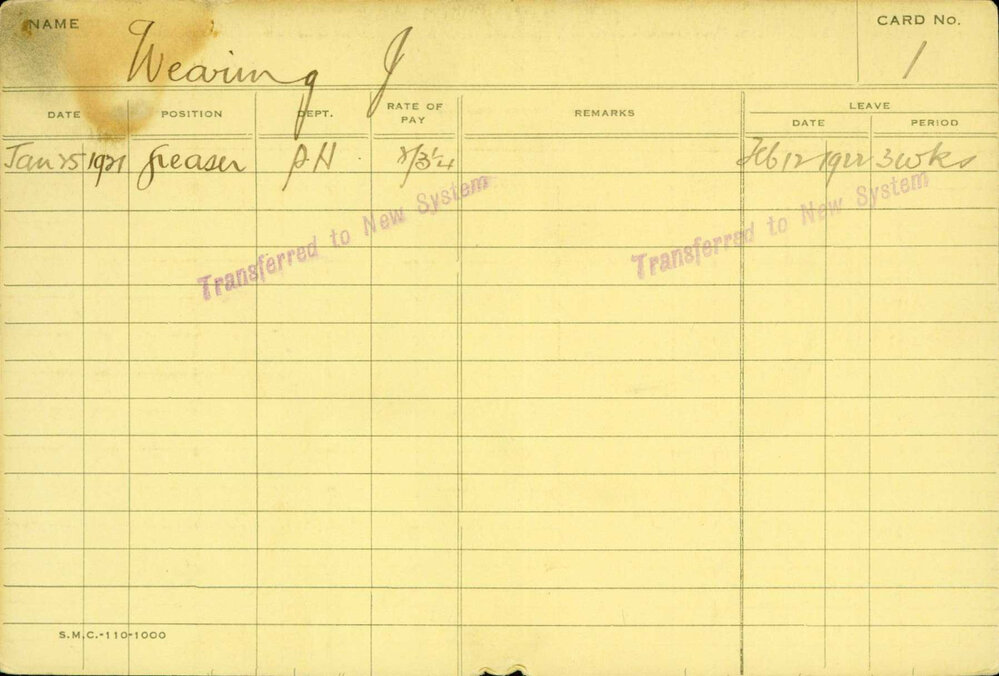 NAME Wearing J CARD No. 1
DATE POSITION DEPT. RATE OF PAY REMARKS LEAVE
DATE PERIOD
Jan 25 1921 Greaser P.H Feb 12 1922 3 wks
Transferred to New System Transferred to New System
S.M.C.-110-1000